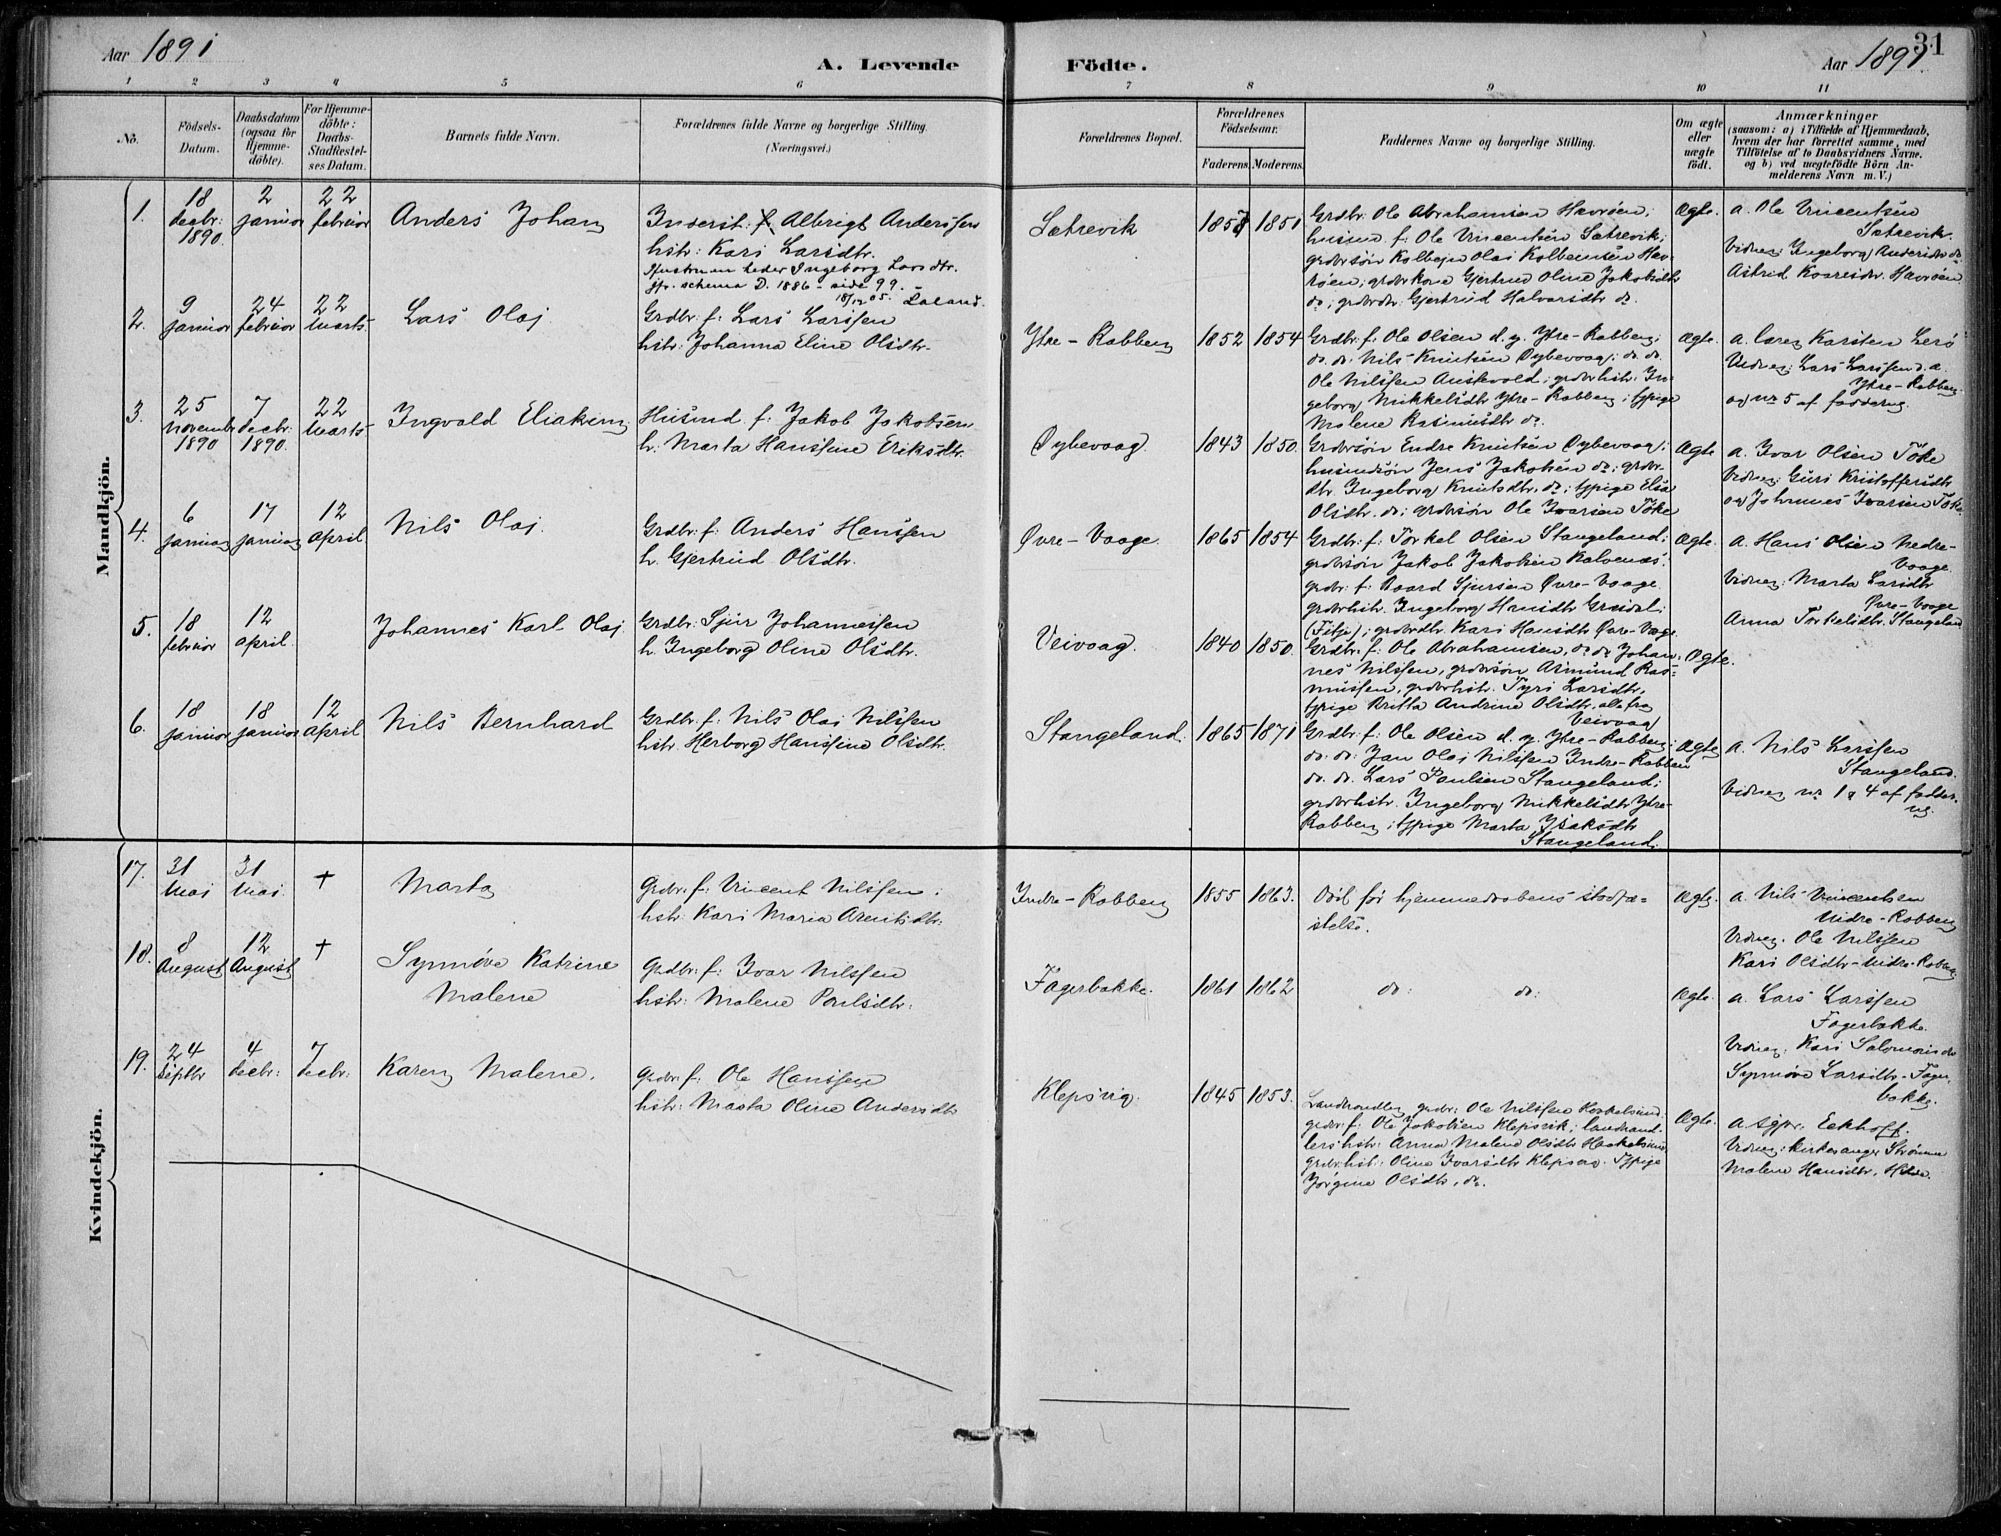 Aar 1891
A. Levende
Födte.
Aar 1891.
31
1 2 3 4 5 6 7 8 9 10 11
No.
Födsels-
Datum.
Daabsdatum
(ogsaa for
Hjemme-
döbte).
For Hjemme-
döbte:
Daabs-
Stadfæstel-
ses Datum.
Barnets fulde Navn.
Forældrenes fulde Navne og borgerlige Stilling.
(Næringsvei.)
Forældrenes Bopæl.
Forældrenes
Födselsaar.
Faderens. Moderens.
Faddernes Navne og borgerlige Stilling.
Om ægte
eller
uægte
födt.
Anmærkninger
(saasom: a) i Tilfælde af Hjemmedaab,
hvem der har forrettet samme, med
Tilföielse af to Daabsvidners Navne.
og b) ved uægtefödte Börn An-
melderens Navn m. V.)
Mandkjön.
1.
18
decbr:
1890.
2
januar
22
februar
Anders Johan
Inderst: f. Albrigt Anderssen
hstr: Kari Larsdtr.
Hustruen heder Ingeborg Larsdtr.
jfr. schema D. 1886 - side 99.
18/12 05.
Sætrevik
1857 1851
Grdbr. Ole Abrahamsen Havröen;
husm. f: Ole Vincentsen Sætrevik;
grdbrsön Kolbejn Olai Kolbeinsen Hav-
röen; grdbrkone Gjertrud Oline Jakobsdtr
do; grdbrdr: Gjertrud Halvorsdtr do.
Ægte.
a. Ole Vincentsen
Sætrevik.
Vidner: Ingeborg Andersdtr do
Astrid Kaaresdr. Havröen
2.
9
januar
24
februar
22
Marts
Lars Olaj
Grdbr: f: Lars Larssen
hstr: Johanna Eline Olsdtr.
Ytre-Rabben
1852 1854
Grdbr. f: Ole Olsen d. y. Ytre-Rabben;
do. do: Nils Knutsen Dybevaag; do. do.
Ole Nilssen Austevold; grdbrhstr. In-
geborg Mikkelsdtr Ytre-Rabben; tjpige
Malene Rasmusdtr do.
Ægte.
a. lærer Karsten Lerö
Vidner: Lars Larssen d. æ.
Ytre-Rabben
og no 5 af fadderne.
3.
25
novembr
1890
7
decbr:
1890.
22
Marts
Ingvald Eliakim
Husmd. f: Jakob Jakobsen
h. Marta Hanssine Eriksdtr.
Dybevaag.
1843 1850.
Grdbrsön Endre Knutsen Dybevaag;
husmdsön Jens Jakobsen do; grdbr-
dtr. Ingeborg Knutsdtr. do; tjpige Elsa
Olsdtr. do; grdbrsön Ole Ivarsen Töke
Ægte
a. Ivar Olsen Töke
Vidner: Guri Kristoffersdtr
og Johannes Ivarsen Töke
4.
6
januar
17
januar
12
April
Nils Olaj.
Grdbr: f: Anders Hanssen
h. Gjertrud Olsdtr.
Övre-Vaage.
1865 1854
Grdbr: f: Torkel Olsen Stangeland;
grdbrsön Jakob Jakobsen Kalvenæs;
grdbr: f: Baard Sjursen Övre-Vaage
grdbrhstr. Ingeborg Hansdtr Grasdal;
(Fitje); grdbrdtr. Kari Hansdtr Övre-Vaage
Ægte.
a. Hans Olsen Nedre-
Vaage.
Vidner: Marta Larsdtr
Övre-Vaage
Anna Torkelsdtr. Stangeland
5.
18
februar
12
april.
Johannes Karl Olaj
Grdbr: Sjur Johannessen
h. Ingeborg Oline Olsdtr.
Veivaag.
1840 1850.
Grdbr. f: Ole Abrahamsen, do do Johan-
nes Nilssen, grdbrsön Asmund Ras-
mussen, grdbrhstr. Tyri Larsdtr,
tjpige Britta Andrine Olsdtr. alle fra
Veivaag
Ægte.
6.
18
januar
18
januar
12
April
Nils Bernhard
Grdbr: f: Nils Olai Nilssen
hstr: Herborg Hanssine Olsdtr.
Stangeland.
1865 1871
Grdbr: f: Ole Olsen d. y. Ytre-Rabben;
do. do: Jan Olaj Nilssen Indre-Rabben
do. do. Lars Paulsen Stangeland;
grdbrhstr. Ingeborg Mikkelsdtr Ytre-
Rabben; tjpige Marta Isaksdtr
Stangeland.
Ægte
a. Nils Larssen
Stangeland.
Vidner no 1 & 4 af fadder-
ne.
Kvindekjön.
17.
31
Maj
31
Maj.
+
Marta
Grdbr: f: Vincent Nilssen
hstr: Kari Maria Arentsdtr:
Indre-Rabben
1855 1863.
död för hjemmedaabens stadfæ-
stelse.
Ægte.
a. Nils Vincentsen
Indre-Rabben
Vidner. Ole Nilssen
Kari Olsdtr-Indre-Rabben
18.
8
August
12
August
+
Synnöve Katrine
Malene
Grdbr: f: Ivar Nilssen
hstr: Malene Poulsdtr:
Fagerbakke.
1861 1862
do: do:
Ægte.
a. Lars Larssen
Fagerbakke.
Vidner: Kari Salomonsdtr
Synnöve Larsdtr-Fager-
bakke.
19.
24
Septbr
4
decbr:
7
decbr:
Karen Malene.
Grdbr: f: Ole Hanssen
hstr: Marta Oline Andersdtr
Klepsvig.
1845 1853.
Landhandler grdbr: Ole Nilssen
grdbr. f: Ole Jakobsen Klepsvik; landhand-
lers hstr: Anna Malene Olsdtr
grdbr. hst: Oline Ivarsdtr Klepsvig. Tjpige
Jörgine Olsdtr, do.
Ægte.
a sgpr. Eckhoff.
Vidner: kirkesanger Strömme
Malene Hansdtr,